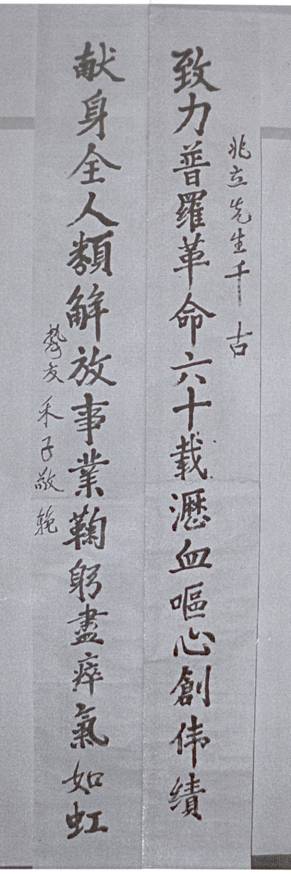 兆立先生千古
致力普羅革命六十载瀝血嘔心創伟績
献身全人類解放事業鞠躬盡瘁氣如虹
摯友禾子敬輓